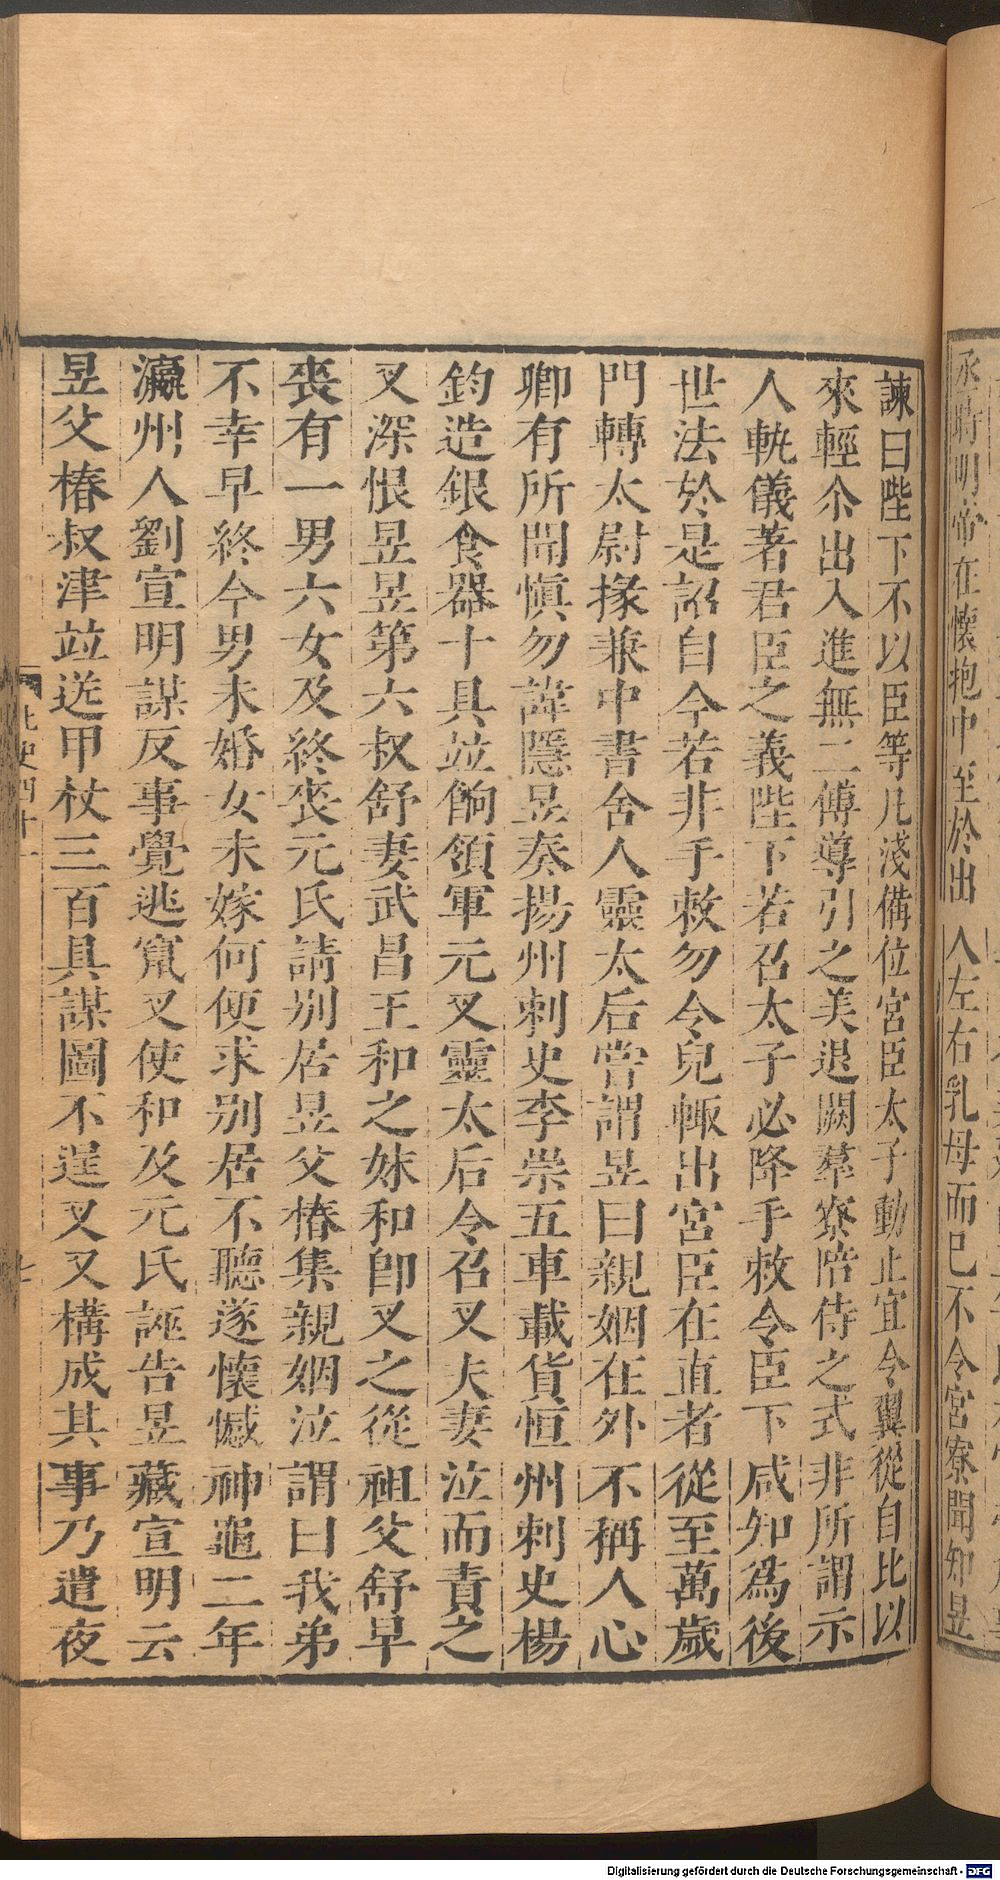 承時明帝在懷抱中至於出入左右乳母而已不令宮寮聞知昱
諫曰陛下不以臣等凡淺備位宮臣太子動止宜令翼從自比以
來輕尒出入進無二傅導引之美退闕羣寮陪侍之式非所謂示
人軌儀著君臣之義陛下若召太子必降手敕令臣下咸知爲後
世法於是詔自今若非手敕勿令兒輙出宮臣在直者從至萬歲
門轉太尉掾兼中書舍人靈太后嘗謂昱曰親姻在外不稱人心
卿有所聞愼勿諱隱昱奏揚州刺史李崇五車載貨恒州刺史楊
鈞造銀食器十具竝餉領軍元叉靈太后令召叉夫妻泣而責之
叉深恨昱昱第六叔舒妻武昌王和之妹和卽叉之從祖父舒早
喪有一男六女及終喪元氏請别居昱父椿集親姻泣謂曰我弟
不幸早終今男未婚女未嫁何便求别居不聽遂懷憾神龜二年
瀛州人劉宣明謀反事覺逃竄叉使和及元氏誣告昱藏宣明云
昱父椿叔津竝送甲杖三百具謀圖不逞叉又構成其事乃遣夜
北史四十一
七
Digitalisierung gefördert durch die Deutsche Forschungsgemeinschaft - DFG